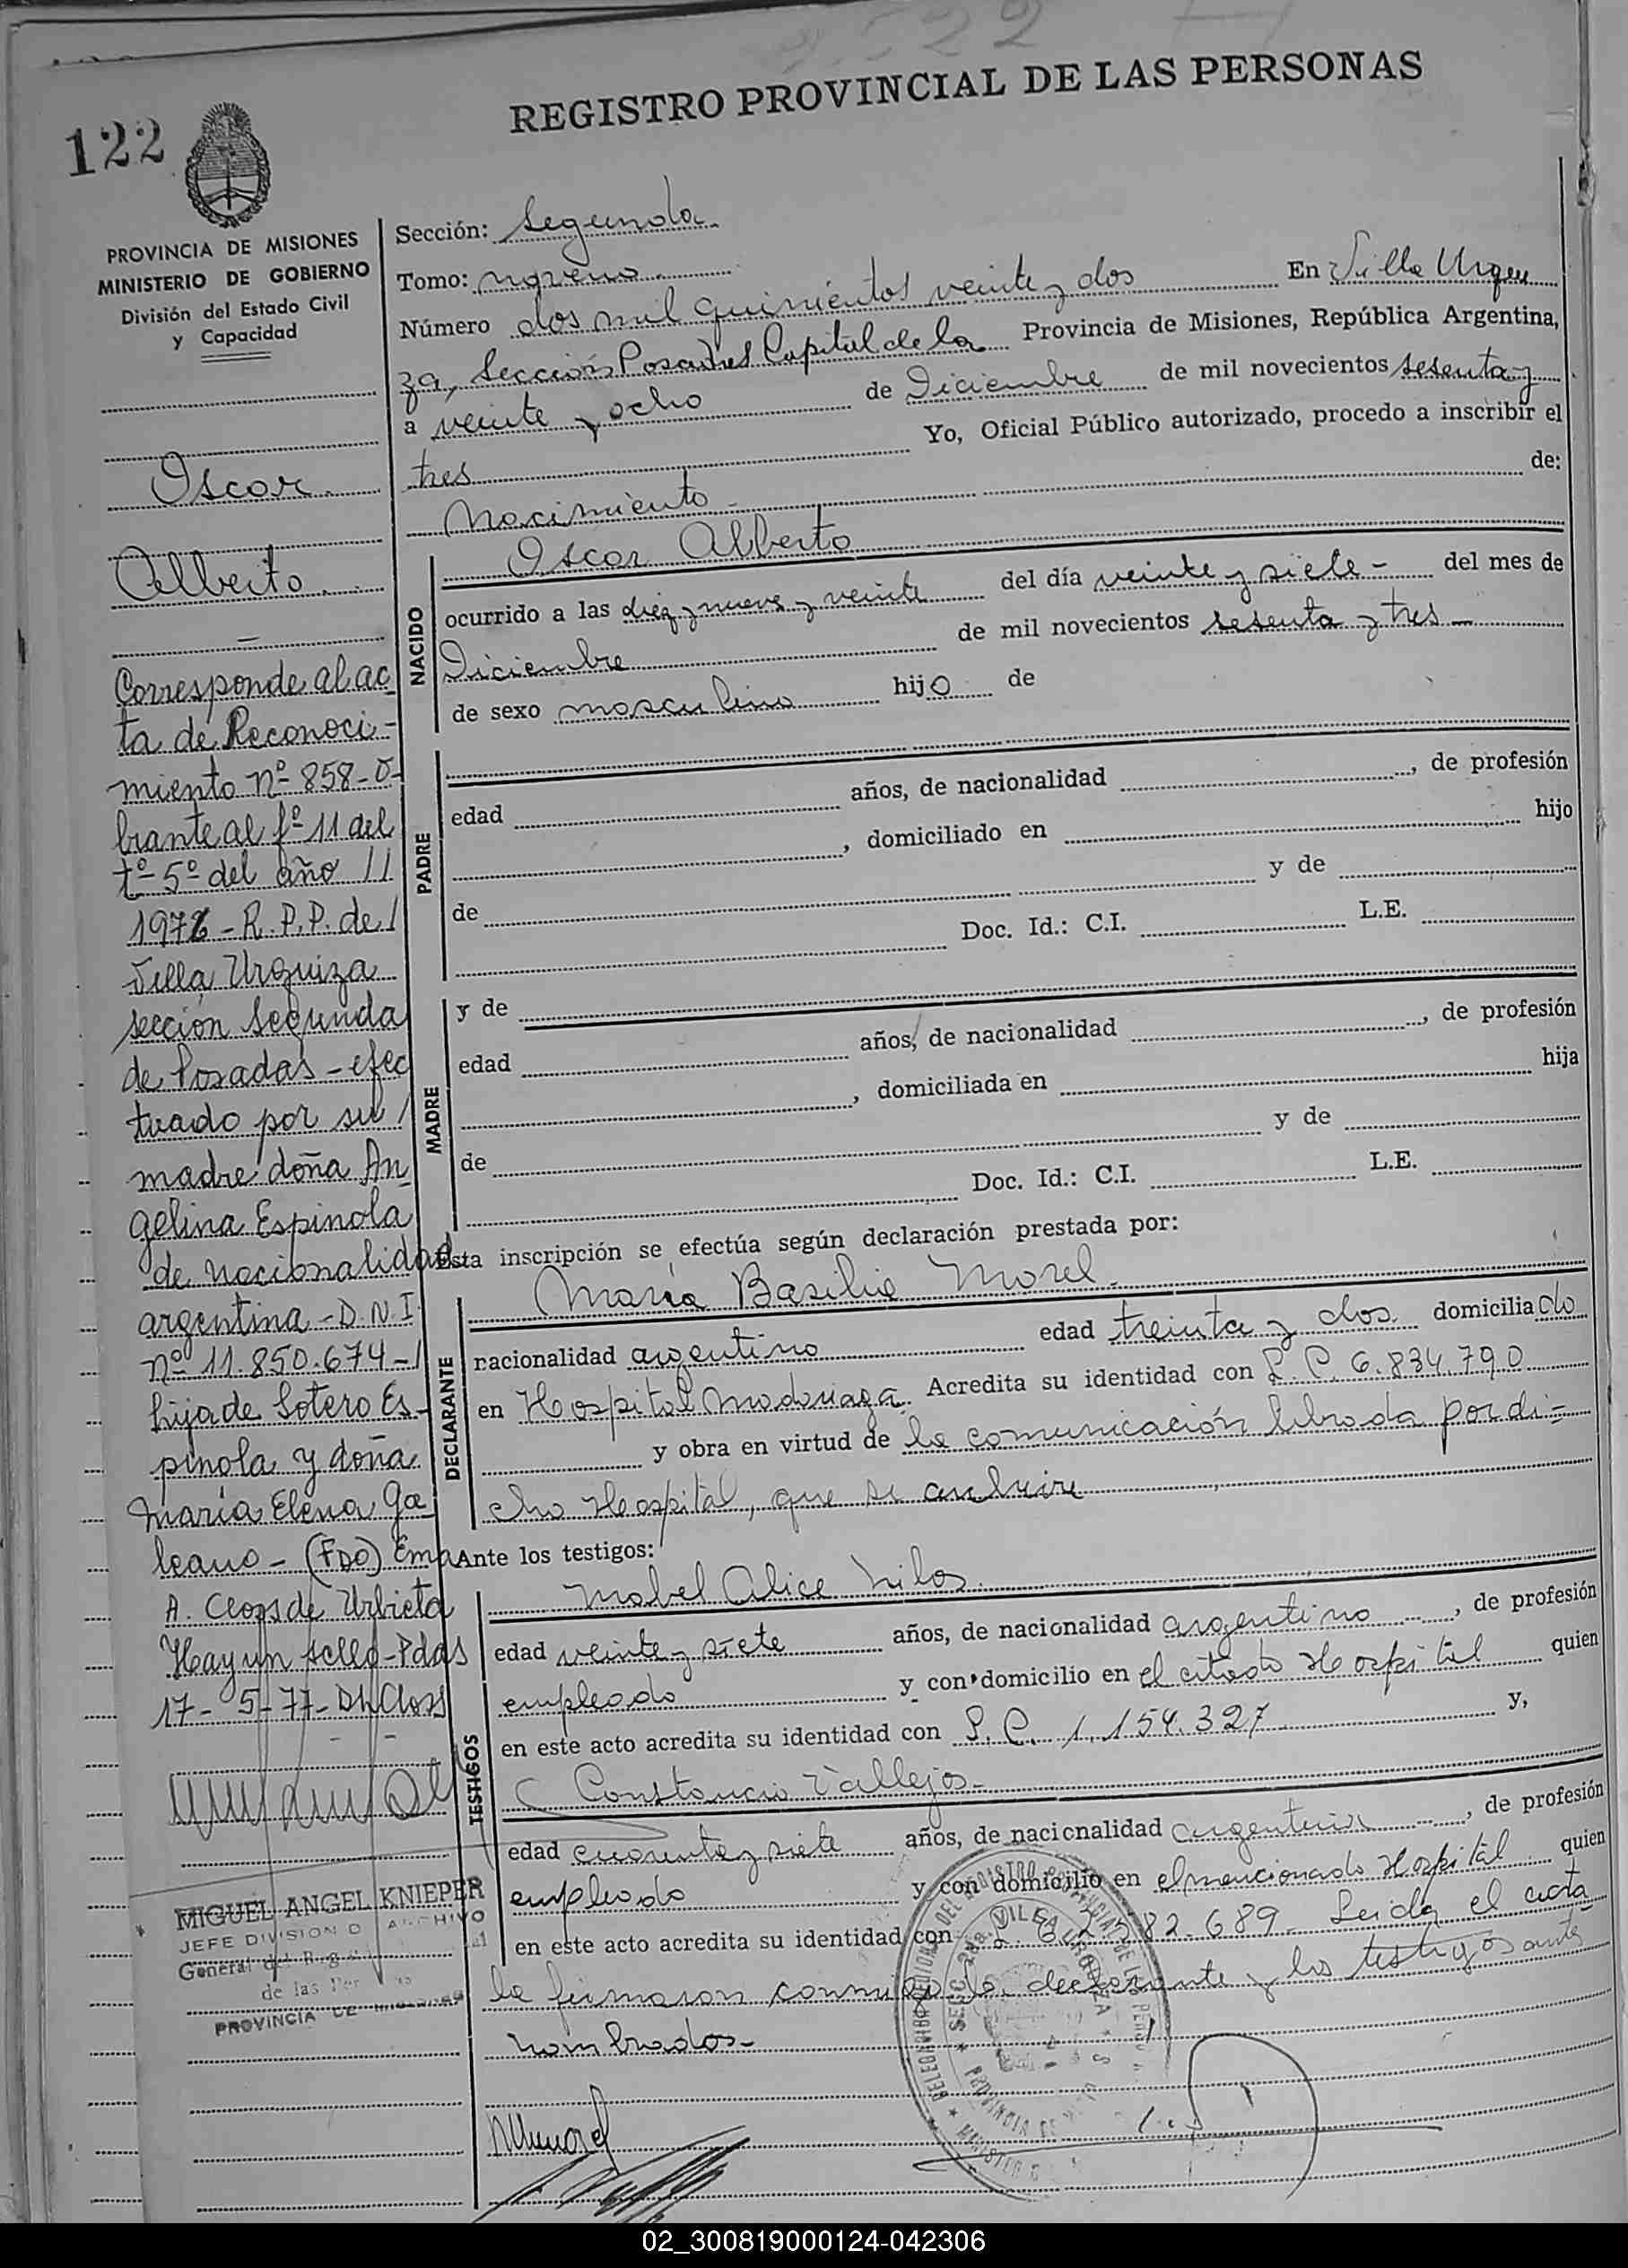 122
REGISTRO PROVINCIAL DE LAS PERSONAS
PROVINCIA DE MISIONES
MINISTERIO DE GOBIERNO
División del Estado Civil
y Capacidad
Oscar
Alberto
Corresponde al ac
ta de Reconoci-
miento nº 858-o-
brante al fº 11 del
tº 5º del año //
1976 - R.P.P. de /
Villa Urquiza
sección segunda
de Posadas - efec
tuado por su /
madre doña An
gelina Espinola
de nacionalidad
argentina - D.N.I
nº 11.850.674 - /
hija de Sotero Es-
pinola y doña
María Elena Ga
leano - (FDO) Ema
A. Closs de Urbieta
Hay un sello - Pdas
17-5-77-
MIGUEL ANGEL KNIEPER
JEFE DIVISION
General
de las
PROVINCIA DE MISIONES
Sección: Segunda
Tomo: noveno
Número dos mil quinientos veinte y dos En Villa Urqui
za, Sección Posadas Capital de la Provincia de Misiones, República Argentina,
a veinte y ocho de Diciembre de mil novecientos sesenta y
tres Yo, Oficial Público autorizado, procedo a inscribir el
Nacimiento de:
NACIDO
Oscar Alberto
ocurrido a las diez y nueve y veinte del día veinte y siete - del mes de
Diciembre de mil novecientos sesenta y tres
de sexo masculino hijo de
PADRE
edad años, de nacionalidad , de profesión
, domiciliado en hijo
de y de
Doc. Id.: C.I. L.E.
MADRE
y de
edad años, de nacionalidad , de profesión
, domiciliada en hija
de y de
Doc. Id.: C.I. L.E.
Esta inscripción se efectúa según declaración prestada por:
DECLARANTE
María Basilia Morel
nacionalidad argentina edad treinta y dos domiciliado
en Hospital Madariaga Acredita su identidad con L.C. 6.834.790
y obra en virtud de la comunicación librada por di-
cho Hospital, que se archiva
Ante los testigos:
TESTIGOS
Mabel Alice
edad veinte y siete años, de nacionalidad argentina , de profesión
empleada y con domicilio en el citado Hospital quien
en este acto acredita su identidad con L.C. 1.154.327 y,
Constancio Vallejos
edad cuarenta y siete años, de nacionalidad argentina , de profesión
empleado y con domicilio en el mencionado Hospital quien
en este acto acredita su identidad con 82.689. Leida el acta
la firmaron conmigo la declarante y los testigos ante
nombrados
02_300819000124-042306